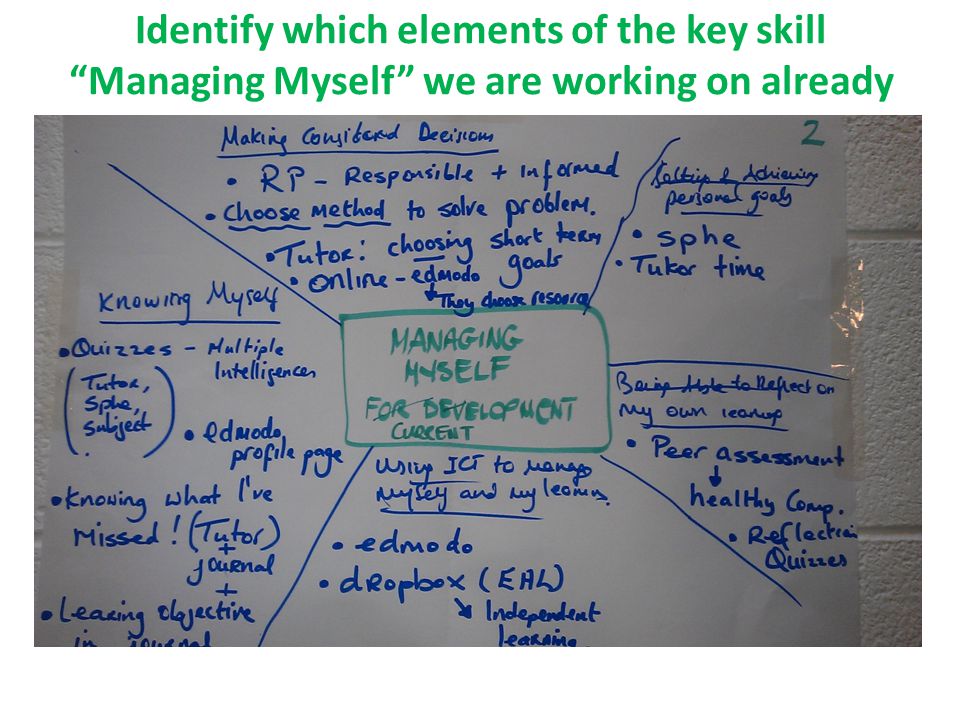 Identify which elements of the key skill
“Managing Myself” we are working on already
2
Making Considered Decisions
• RP - Responsible + informed
• Choose Method to solve problem.
• Tutor: choosing short term
goals
• online - edmodo
They choose resource
Setting & Achieving
personal goals
• sphe
• Tutor time
Knowing Myself
• Quizzes - Multiple
Intelligences
(Tutor,
Sphe,
subject)
• edmodo
profile page
• Knowing what I've
Missed! (Tutor)
+
journal
+
• Learing objective
in journal
MANAGING
MYSELF
FOR DEVELOPMENT
CURRENT
Being Able to Reflect on
My own learning
• Peer assessment
healthy Comp.
• Reflection
Quizzes
Using ICT to manage
myself and my learning
• edmodo
• dropbox (EAL)
Independent
learning.